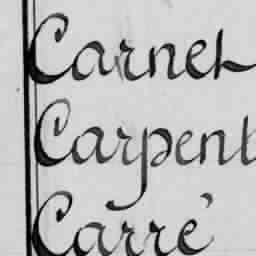 Carnet
Carpent
Carré